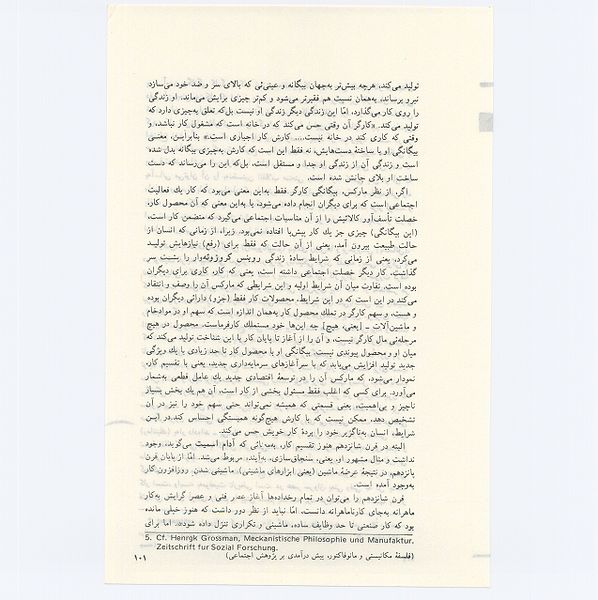 تولید می‌کند، هرچه بیش‌تر به‌جهان بیگانه و عینی‌ئی که بالای سر و ضد خود می‌سازد
نیرو برساند، به‌همان نسبت هم فقیرتر می‌شود و کم‌تر چیزی برایش می‌ماند. او زندگی
را روی کار می‌گذارد، امّا این زندگی دیگر زندگی او نیست بل‌که تعلق به‌چیزی دارد که
تولید می‌کند. «کارگر آن وقتی حس می‌کند که در خانه است که مشغول کار نباشد، و
وقتی که کاری کند در خانه نیست..... کارش کار اجباری است.» بنابراین، معنی
بیگانگی او با ساختهٔ دست‌هایش، نه فقط این است که کارش به‌چیزی بیگانه بدل شده
است و زندگی آن از زندگی او جدا و مستقل است، بل‌که این را می‌رساند که دست
ساخت او بلای جانش شده است.
اگر، از نظر مارکس، بیگانگی کارگر فقط به‌این معنی می‌بود که کار یك فعالیت
اجتماعی است که برای دیگران انجام داده می‌شود، یا به‌این معنی که آن محصول کار،
خصلت تأسف‌آور کالائیش را از آن مناسبات اجتماعی می‌گیرد که متضمن کار است،
(این بیگانگی) چیزی جز یك کار بیش‌پا افتاده نمی‌بود. زیرا، از زمانی که انسان از
حالت طبیعت بیرون آمد، یعنی از آن حالت که فقط برای (رفع) نیازهایش تولید
می‌کرد، یعنی از زمانی که شرایط سادهٔ زندگی روبنس گروزوئه‌وار را پشت سر
گذاشت، کار دیگر خصلت اجتماعی داشته است، یعنی که کار، کاری برای دیگران
بوده است. تفاوت میان آن شرایط اولیه و این شرایطی که مارکس آن را وصف و انتقاد
می‌کند در این است که در این شرایط، محصولات کار فقط (جزو) دارائی دیگران بوده
و هست، و سهم کارگر در تملك محصول کار به‌همان اندازه است که سهم او در موادخام
و ماشین‌آلات ـ [یعنی، هیچ] چه این‌ها خود مستملك کارفرماست. محصول در هیچ
مرحله‌ئی مال کارگر نیست، و آن را از آغاز تا پایان کار با این شناخت تولید می‌کند که
میان او و محصول پیوندی نیست. بیگانگی او با محصول کار تا حد زیادی با یك ویژگی
جدید تولید افزایش می‌یابد که با سرآغازهای سرمایه‌داری جدید، یعنی با تقسیم کار،
نمودار می‌شود، که مارکس آن را در توسعهٔ اقتصادی جدید یك عامل قطعی به‌شمار
می‌آورد. برای کسی که اغلب فقط مسئول بخشی از کار است، آن هم یك بخش بسیار
ناچیز و بی‌اهمیت، یعنی قسمتی که همیشه نمی‌تواند حتی سهم خود را نیز در آن
تشخیص دهد، ممکن نیست که با کارش هیچ‌گونه همبستگی احساس کند. در این
شرایط، انسان به‌ناگزیر خود را بردهٔ کار خویش حس می‌کند.
البته در قرن شانزدهم هنوز تقسیم کار، به‌معنائی که آدام اسمیت می‌گوید، وجود
نداشت و مثال مشهور او، یعنی، سنجاق‌سازی، به‌آینده، مربوط می‌شد. امّا از پایان قرن
پانزدهم، در نتیجهٔ عرضهٔ ماشین (یعنی ابزارهای ماشینی)، ماشینی شدن روزافزون کار
به‌وجود آمده است.
قرن شانزدهم را می‌توان در تمام رخدادها آغاز عصر فنی و عصر گرایش به‌کار
ماهرانه به‌جای کارناماهرانه دانست. امّا نباید از نظر دور داشت که هنوز خیلی مانده
بود که کار صنعتی تا حد وظایف ساده، ماشینی و تکراری تنزل داده شود.۵ اما برای
5. Cf. Henrgk Grossman, Meckanistische Philosophie und Manufaktur.
Zeitschrift fur Sozial Forschung.
(فلسفهٔ مکانیستی و مانوفاکتور، پیش درآمدی بر پژوهش اجتماعی)
۱۰۱